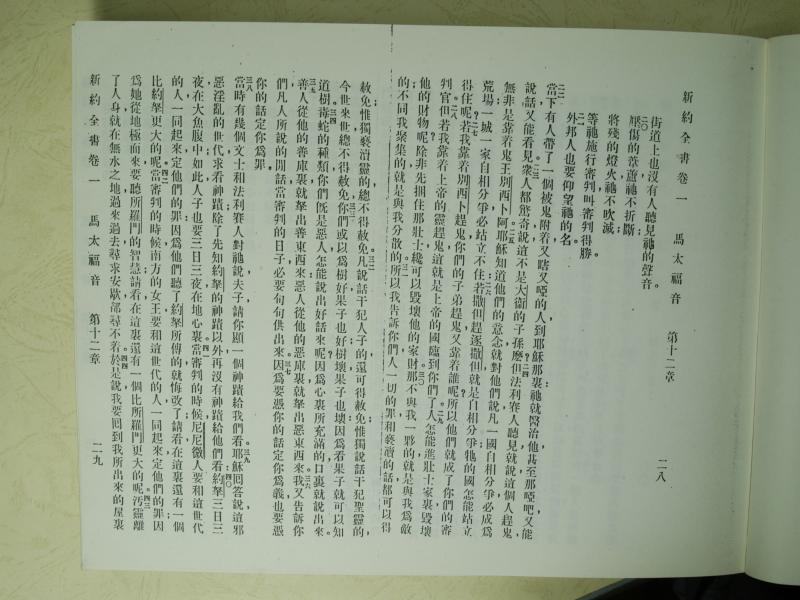 新約全書卷一　馬太福音　第十二章　二八
街道上也沒有人聽見祂的聲音。
二〇壓傷的葦蘆祂不折斷，
將殘的燈火祂不吹滅；
等祂施行審判叫審判得勝，
二一外邦人也要仰望祂的名。
二二當下有人帶了一個被鬼附着又瞎又啞的人到耶穌那裏，祂就醫治他，甚至那啞吧又能
說話又能看見。二三衆人都驚奇說，這不是大衛的子孫麽？二四但法利賽人聽見就說，這個人趕鬼，
無非是靠着鬼王別西卜阿。二五耶穌知道他們的意念，就對他們說，凡一國自相分爭必成爲
荒場；一城一家自相分爭必站立不住；二六若撒但趕逐撒但，就是自相分爭，牠的國怎能站立
得住呢？二七若我靠着別西卜趕鬼，你們的子弟趕鬼又靠着誰呢？所以他們就成了你們的審
判官。二八但若我靠着上帝的靈趕鬼，這就是上帝的國臨到你們了。二九人怎能進壯士家裏毀壞
他的財物呢？除非先捆住那壯士，纔可以毀壞他的家財。三〇那不與我一夥的，就是與我爲敵
的；不同我聚集的，就是與我分散的。三一所以我告訴你們，人一切的罪和褻瀆的話都可以得
赦免；惟獨褻瀆靈的，總不得赦免。三二凡說話干犯人子的，還可得赦免；惟獨說話干犯聖靈的，
今世來世總不得赦免。三三你們或以爲樹好果子也好，樹壞果子也壞；因爲看果子就可以知
道樹。三四毒蛇的種類，你們旣是惡人，怎能說出好話來呢？因爲心裏所充滿的，口裏就說出來。
三五善人從他的善庫裏就拏出善東西來；惡人從他的惡庫裏就拏出惡東西來。三六我又告訴你
們，凡人所說的閒話，當審判的日子，必要句句供出來；三七因爲要憑你的話定你爲義，也要憑
你的話定你爲罪。
三八當時有幾個文士和法利賽人對祂說，夫子，請你顯一個神蹟給我們看。三九耶穌囘答說，這邪
惡淫亂的世代求看神蹟，除了先知約拏的神蹟以外，再沒有神蹟給他們看。四〇約拏三日三
夜在大魚腹中，如此人子也要三日三夜在地心裏。四一當審判的時候，尼尼微人要和這世代
的人一同起來定他們的罪，因爲他們聽了約拏所傳的就悔改了；請看，在這裏還有一個
比約拏更大的呢。四二當審判的時候，南方的女王要和這世代的人一同起來定他們的罪，因
爲她從地極而來要聽所羅門的智慧；請看，在這裏還有一個比所羅門更大的呢。四三汚靈離
了人身，就在無水之地過來過去尋求安歇，卻尋不着；四四於是說，我要囘到我所出來的屋裏
新約全書卷一　馬太福音　第十二章　二九